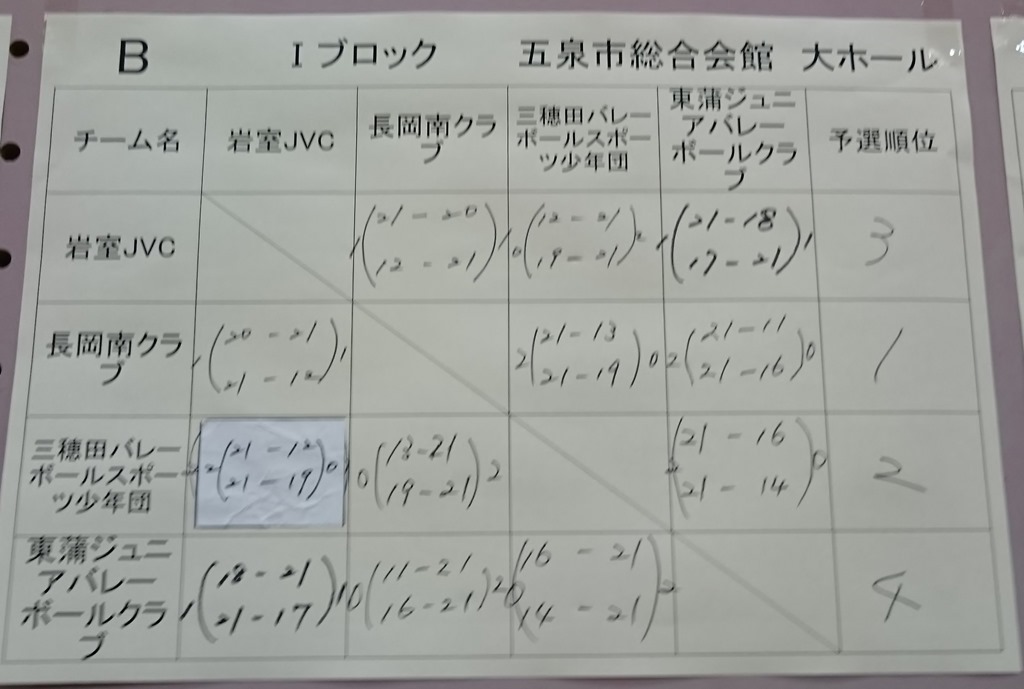 B Iブロック 五泉市総合会館 大ホール
チーム名 岩室JVC 長岡南クラブ 三穂田バレーボールスポーツ少年団 東蒲ジュニアバレーボールクラブ 予選順位
岩室JVC 1(21-20 12-21)1 0(12-21 19-21)2 1(21-18 17-21)1 3
長岡南クラブ 1(20-21 21-12)1 2(21-13 21-19)0 2(21-11 21-16)0 1
三穂田バレーボールスポーツ少年団 2(21-12 21-19)0 0(13-21 19-21)2 2(21-16 21-14)0 2
東蒲ジュニアバレーボールクラブ 1(18-21 21-17)1 0(11-21 16-21)2 0(16-21 14-21)2 4